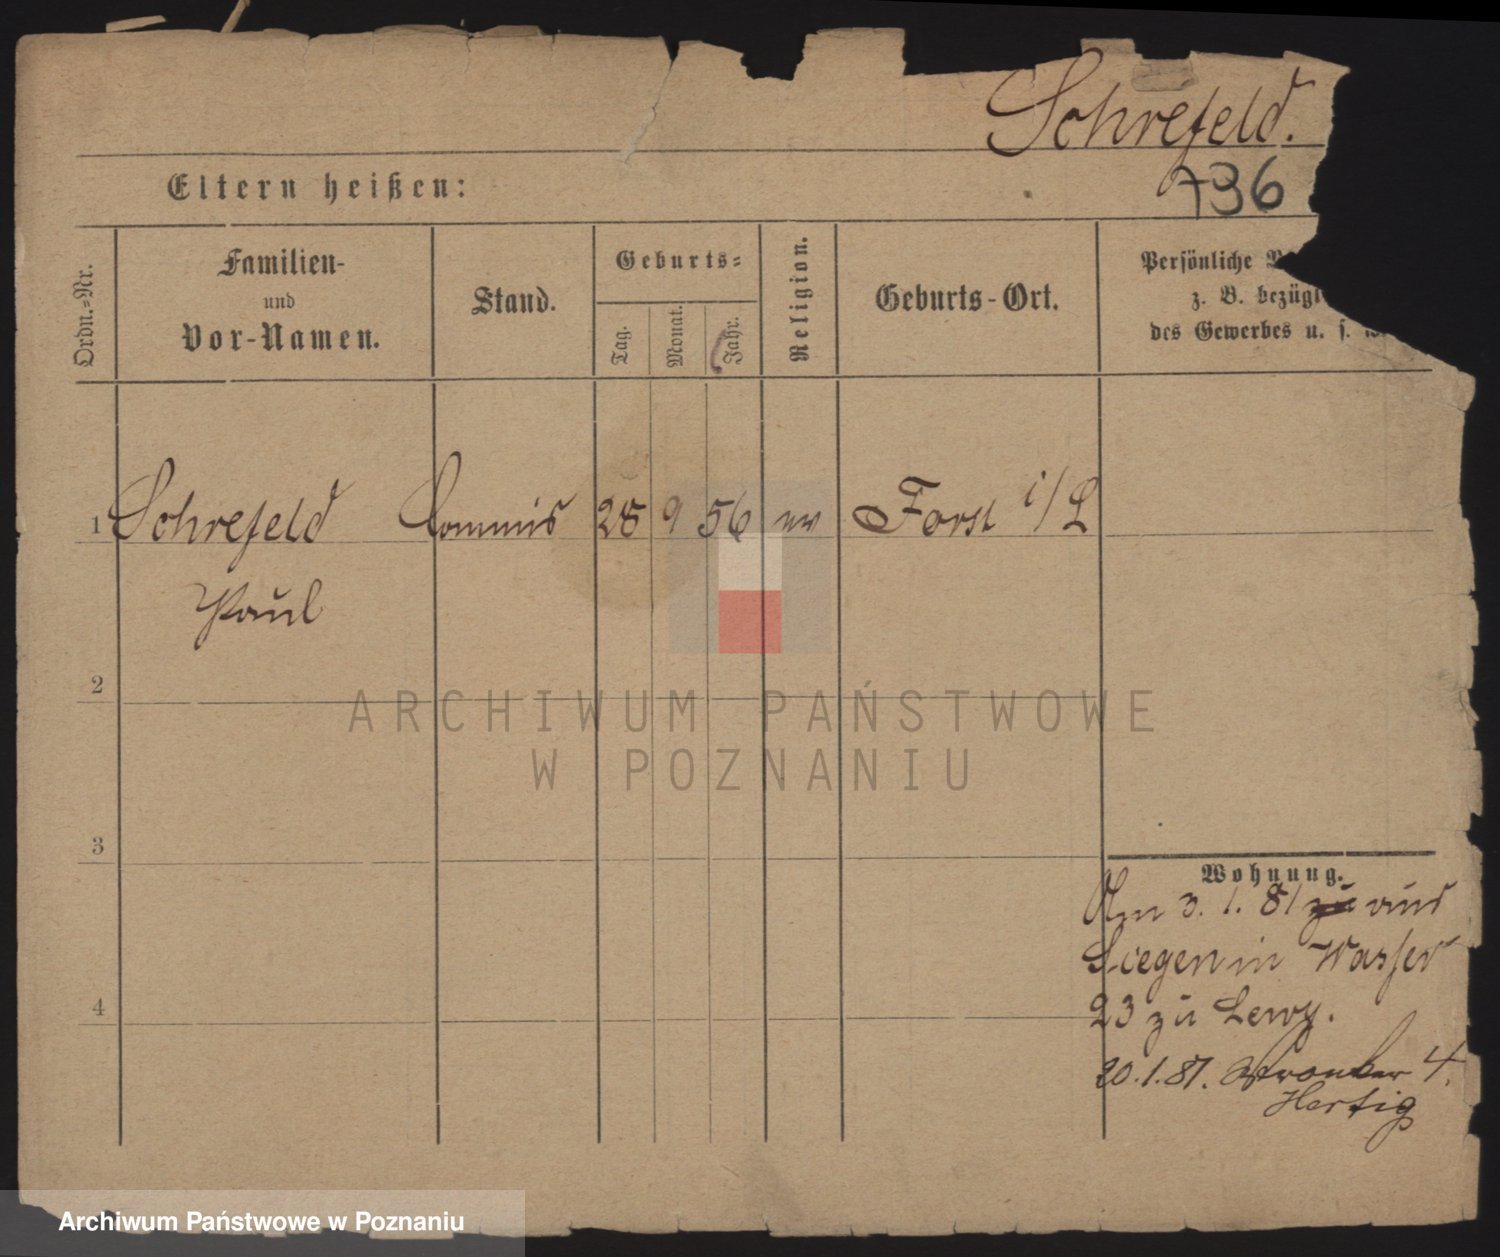 Schrefeld.
736
Eltern heißen:
Ordn.-Nr.
Familien-
und
Vor-Namen.
Stand.
Geburts-
Tag.
Monat.
Jahr.
Religion.
Geburts-Ort.
Persönliche
z. B. bezügl
des Gewerbes u. s. w.
1 Schrefeld Commis 28 9 56 ev Forst i/L
Paul
2
3
4
Wohnung.
Am 3. 1. 81 zu aus
Liegen in Wasser
23 zu Lewy.
20. 1. 81. 4.
Hertig
ARCHIWUM PAŃSTWOWE
W POZNANIU
Archiwum Państwowe w Poznaniu